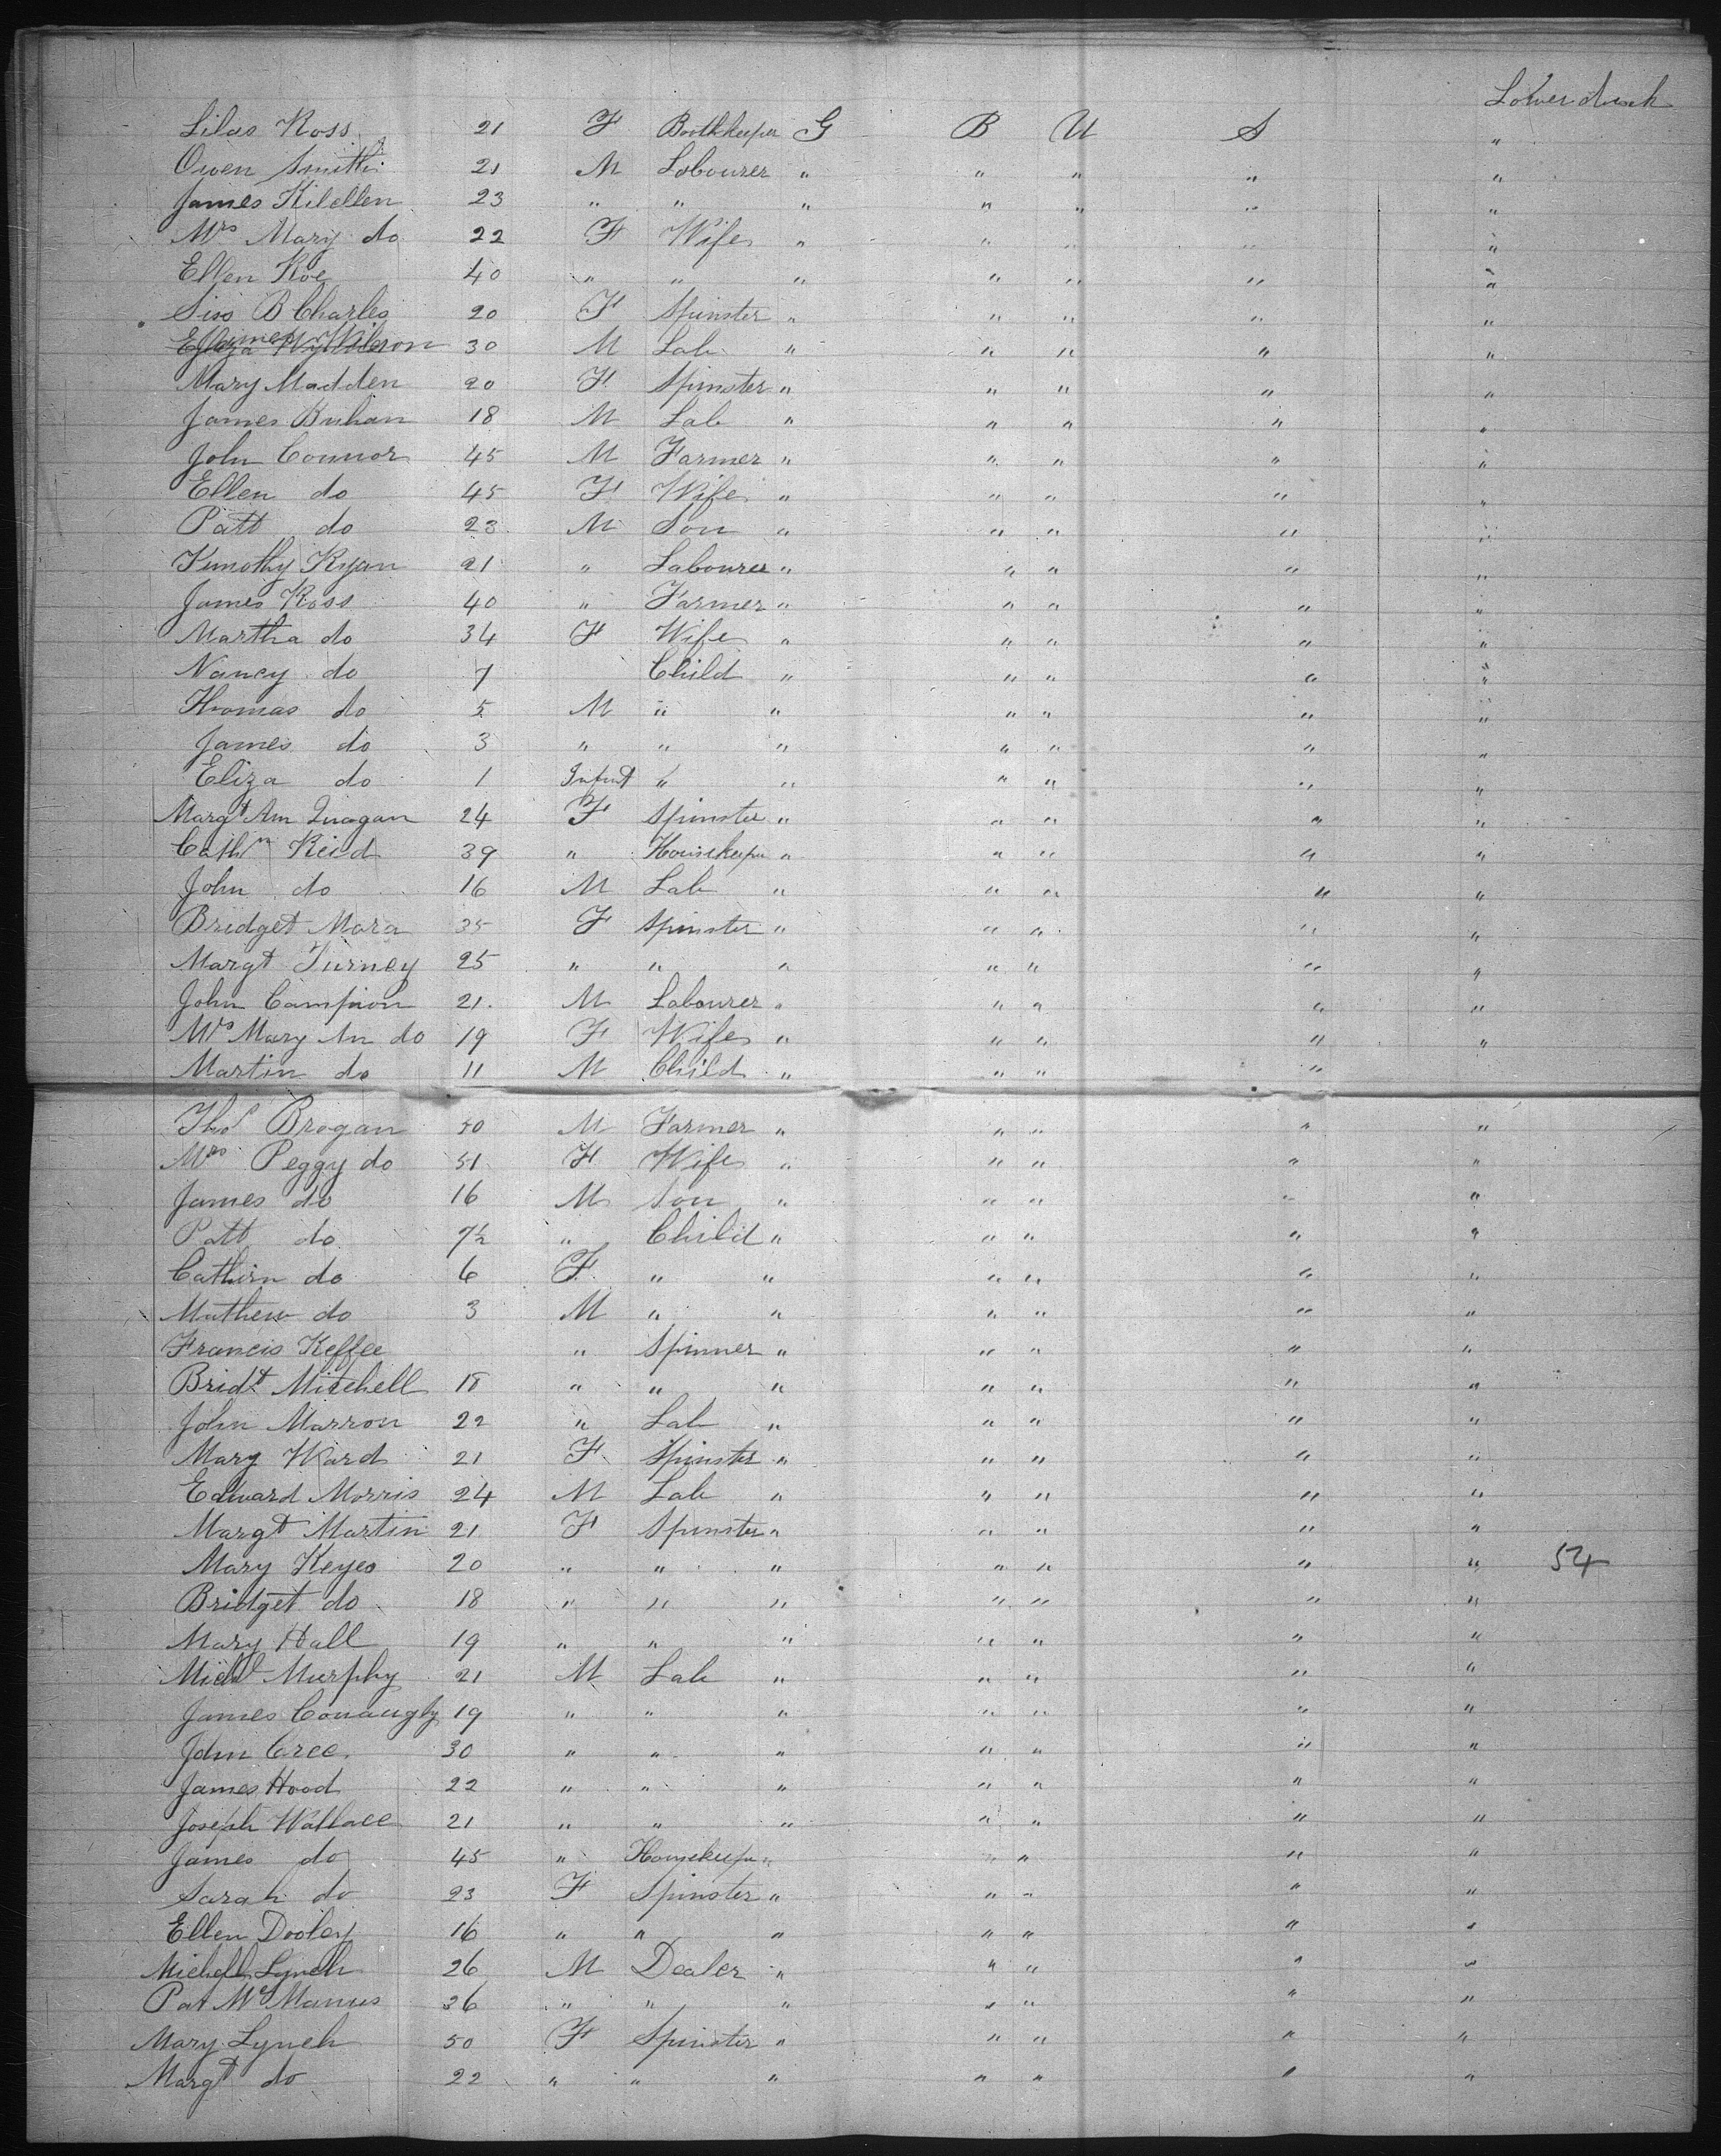 Lower deck
Lilas Ross 21 F Bookkeeper G B U S "
Owen Smith 21 M Labourer " " " " "
James Kilellen 23 " " " " " " "
Mrs Mary do 22 F Wife " " " " "
Ellen Roe 40 " " " " " " "
Siss B Charles 20 F Spinster " " " " "
James Wilson 30 M Lab " " " " "
Mary Madden 20 F Spinster " " " " "
James Buhan 18 M Lab " " " " "
John Connor 45 M Farmer " " " " "
Ellen do 45 F Wife " " " " "
Patt do 23 M Son " " " " "
Timothy Ryan 21 " Labourer " " " " "
James Ross 40 " Farmer " " " " "
Martha do 34 F Wife " " " " "
Nancy do 7 Child " " " " "
Thomas do 5 M " " " " " "
James do 3 " " " " " " "
Eliza do 1 Infant " " " " " "
Margt Ann 24 F Spinster " " " " "
Cathn Reid 39 " Housekeeper " " " " "
John do 16 M Lab " " " " "
Bridget Mara 35 F Spinster " " " " "
Margt Turney 25 " " " " " " "
John Campion 21. M Labourer " " " " "
Mrs Mary An do 19 F Wife " " " " "
Martin do 11 M Child " " " "
Thos Brogan 50 M Farmer " " " " "
Mrs Peggy do 51 F Wife " " " " "
James do 16 M Son " " " " "
Patt do 7½ " Child " " " " "
Cathirn do 6 F " " " " " "
Mathew do 3 M " " " " " "
Francis Keffee " Spinner " " " " "
Bridt Mitchell 18 " " " " " " "
John Marron 22 " Lab " " " " "
Mary Ward 21 F Spinster " " " " "
Edward Morris 24 M Lab " " " " "
Margt Martin 21 F Spinster " " " " "
Mary Keyes 20 " " " " " " " 54
Bridget do 18 " " " " " " "
Mary Hall 19 " " " " " " "
Michl Murphy 21 M Lab " " " " "
James Conaughy 19 " " " " " " "
John Cree 30 " " " " " " "
James Hood 22 " " " " " " "
Joseph Wallace 21 " " " " " " "
James do 45 " Housekeeper " " " " "
Sarah do 23 F Spinster " " " " "
Ellen Dooley 16 " " " " " " "
Lynch 26 M Dealer " " " " "
Pat McManus 36 " " " " " " "
Mary Lynch 50 F Spinster " " " " "
Margt do 22 " " " " " " "